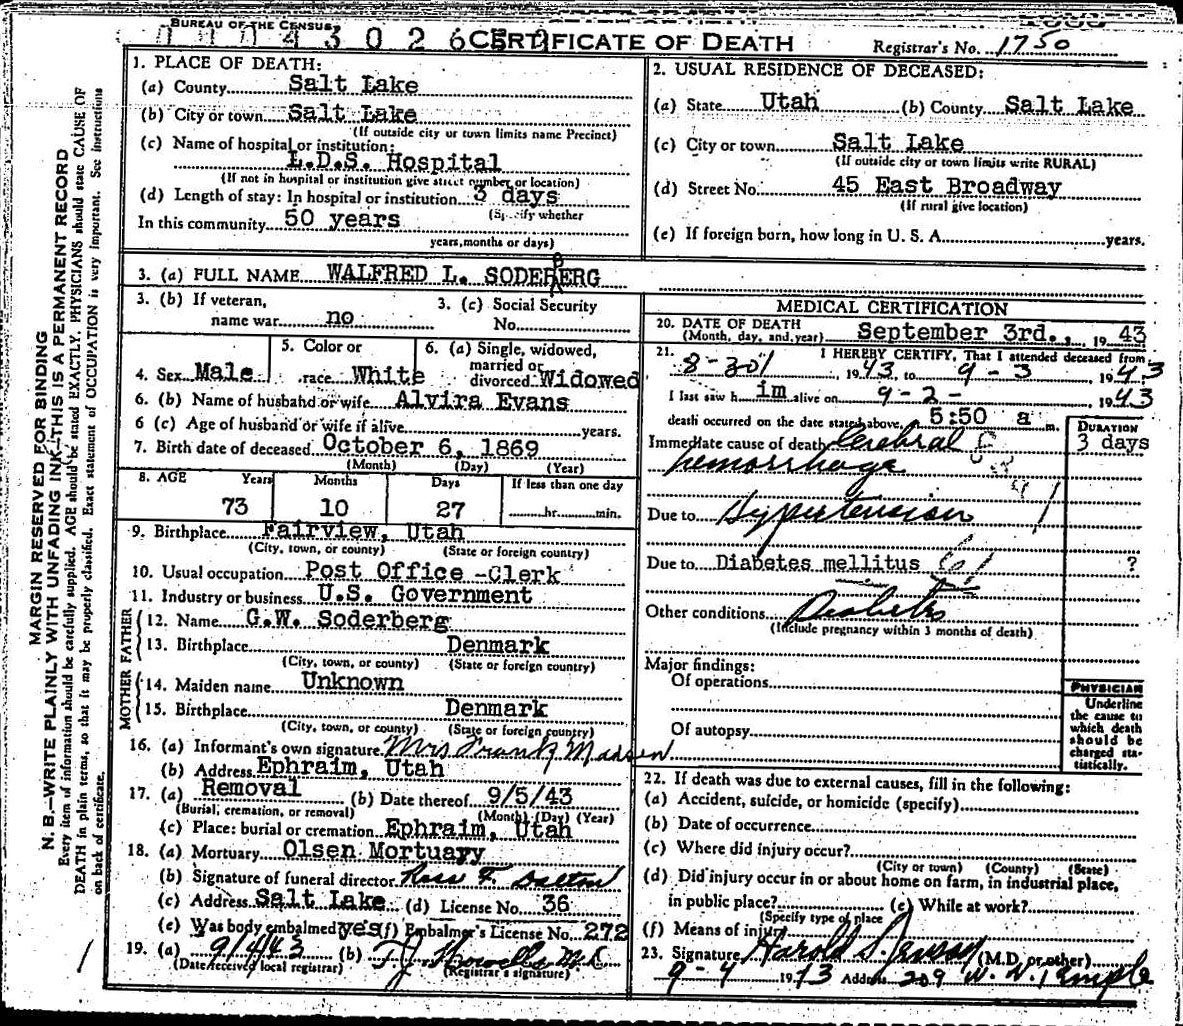 BUREAU OF THE CENSUS
CERTIFICATE OF DEATH
Registrar's No. 1750
1. PLACE OF DEATH:
(a) County Salt Lake
(b) City or town Salt Lake
(If outside city or town limits name Precinct)
(c) Name of hospital or institution:
L.D.S. Hospital
(If not in hospital or institution give street number or location)
(d) Length of stay: In hospital or institution 3 days
(Specify whether
In this community 50 years
years, months or days)
2. USUAL RESIDENCE OF DECEASED:
(a) State Utah (b) County Salt Lake
(c) City or town Salt Lake
(If outside city or town limits write RURAL)
(d) Street No. 45 East Broadway
(If rural give location)
(e) If foreign born, how long in U. S. A. years.
3. (a) FULL NAME WALFRED L. SODERBERG
3. (b) If veteran,
name war no
3. (c) Social Security
No.
4. Sex Male
5. Color or
race White
6. (a) Single, widowed,
married or
divorced Widowed
6. (b) Name of husband or wife Alvira Evans
6 (c) Age of husband or wife if alive years.
7. Birth date of deceased October 6, 1869
(Month) (Day) (Year)
8. AGE Years Months Days If less than one day
73 10 27 hr. min.
9. Birthplace Fairview, Utah
(City, town, or county) (State or foreign country)
10. Usual occupation Post Office -Clerk
11. Industry or business U.S. Government
FATHER
12. Name G.W. Soderberg
13. Birthplace Denmark
(City, town, or county) (State or foreign country)
MOTHER
14. Maiden name Unknown
15. Birthplace Denmark
(City, town, or county) (State or foreign country)
16. (a) Informant's own signature Mrs Frank Madsen
(b) Address Ephraim, Utah
17. (a) Removal (b) Date thereof 9/5/43
(Burial, cremation, or removal) (Month) (Day) (Year)
(c) Place: burial or cremation Ephraim, Utah
18. (a) Mortuary Olsen Mortuary
(b) Signature of funeral director Ross F. Dalton
(c) Address Salt Lake (d) License No. 36
(e) Was body embalmed yes (f) Embalmer's License No. 272
19. (a) 9/4/43 (b) T.J. Howells M.D.
(Date received local registrar) (Registrar's signature)
MEDICAL CERTIFICATION
20. DATE OF DEATH
(Month, day, and year) September 3rd., 1943
21. I HEREBY CERTIFY, That I attended deceased from
8-30, 1943, to 9-3 1943
I last saw him alive on 9-2- 1943
death occurred on the date stated above, 5:50 a m.
DURATION
Immediate cause of death Cerebral 3 days
hemorrhage
Due to Hypertension
Due to Diabetes mellitus 61 ?
Other conditions Diabetes
(Include pregnancy within 3 months of death)
Major findings:
Of operations
Of autopsy
PHYSICIAN
Underline
the cause to
which death
should be
charged sta-
tistically.
22. If death was due to external causes, fill in the following:
(a) Accident, suicide, or homicide (specify)
(b) Date of occurrence
(c) Where did injury occur?
(City or town) (County) (State)
(d) Did injury occur in or about home on farm, in industrial place,
in public place? (e) While at work?
(Specify type of place
(f) Means of injury
23. Signature Harold (M.D. or other)
9-4 1943 Address 209 W. N. Temple
MARGIN RESERVED FOR BINDING
N. B.—WRITE PLAINLY WITH UNFADING INK—THIS IS A PERMANENT RECORD
Every item of information should be carefully supplied. AGE should be stated EXACTLY. PHYSICIANS should state CAUSE OF
DEATH in plain terms, so that it may be properly classified. Exact statement of OCCUPATION is very important. See instructions
on back of certificate.